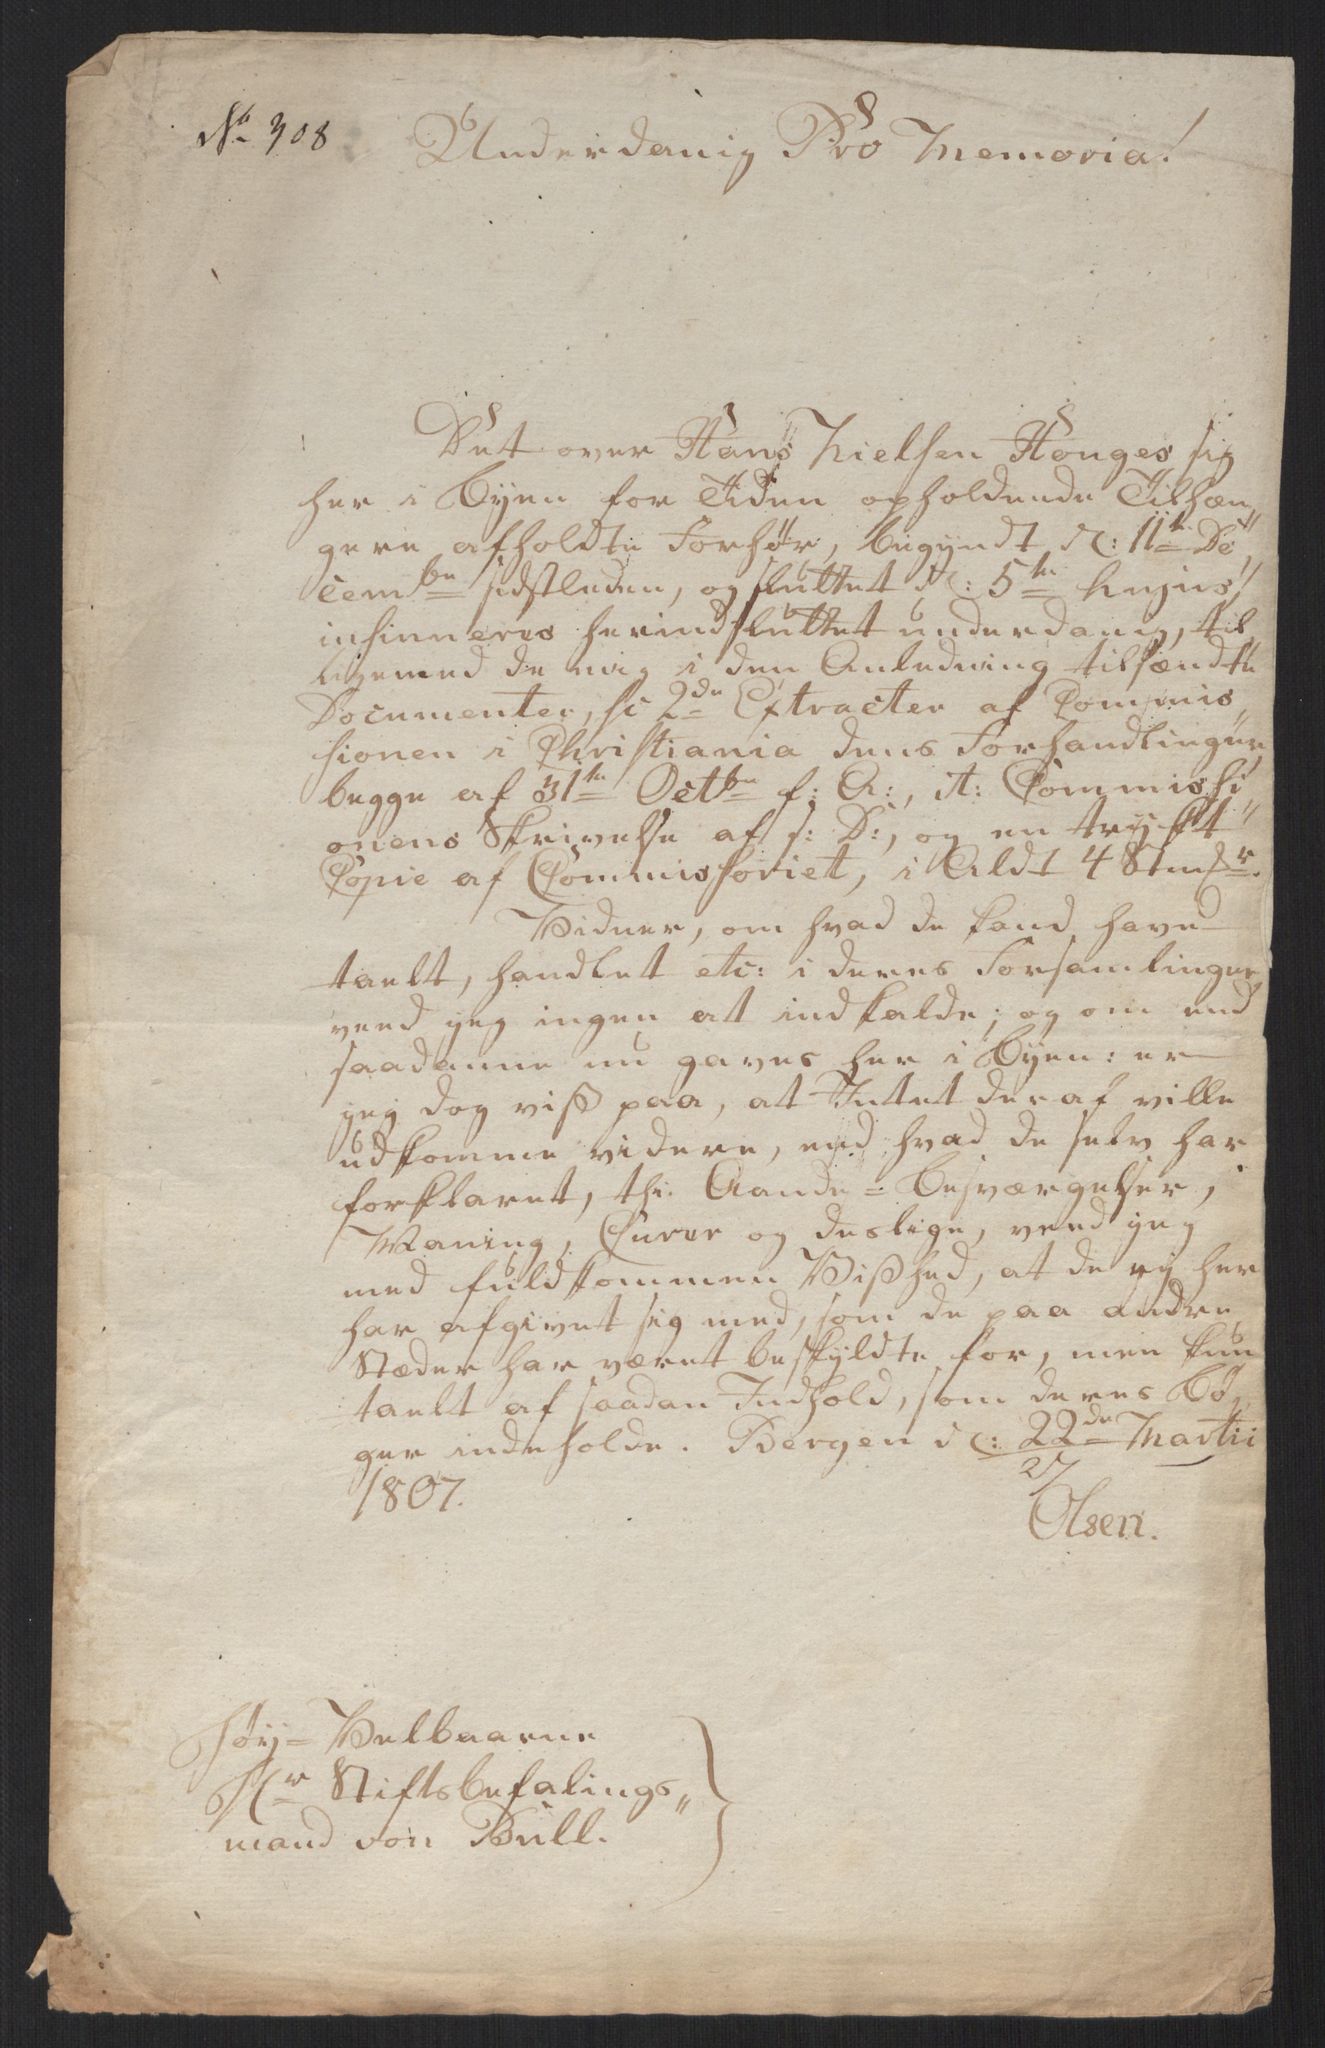 No 308
Underdanig Pro Memoria!
Det over Hans Nielsen Houges sig
her i Byen for Tiden opholdende Tilhæn„
gere afholdte Forhør, begyndt d: 11te De„
cembr sidstleden, og sluttet d: 5te hujus,
insinueres herindsluttet underdanig, til„
ligemed de mig i den Anledning tilsændte
Documenter, sc 2de Extracter af Commis„
sionen i Christiania dens Forhandlinger,
begge af 31te Octbr f: A:, it: Commissi„
onens Skrivelse af s: D:, og en trykt
Copie af Commissoriet, i Aldt 4 Stukr.
Vidner, om hvad de kand have
taelt, handlet etc: i deres Forsamlinger
veed jeg ingen at indkalde; og om end
saadanne nu gaves her i Byen: er
jeg dog viss paa, at Intet deraf ville
udkomme videre, end hvad de selv har
forklaret, thi Aande=besværgelser,
Maning, Curer og deslige, veed jeg
med fuldkommen Visshed, at de ey her
har afgivet sig med, som de paa andre
Stæder har været beskyldte for, men kun
taelt af saadan Indhold, som deres Bø„
ger indeholde. Bergen d: 22de Martii
1807.
27/
Olsen.
Høy=Velbaarne
Hr Stiftsbefalings„
mand von Bull.